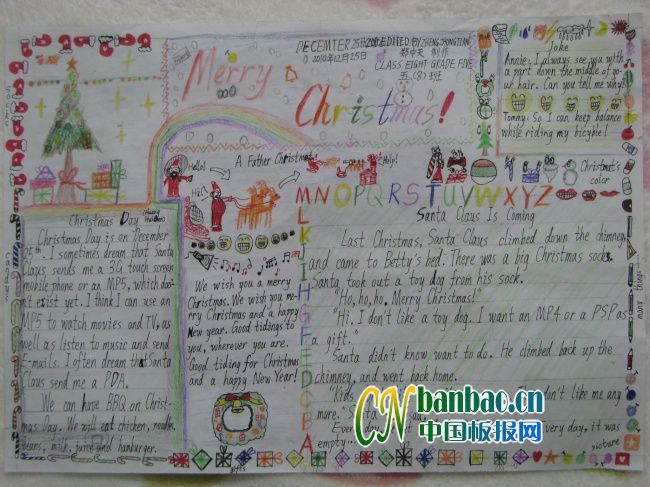 DECEMTER 25th 2010 EDITED BY ZHENG ZHONGTIAN
2010年12月25日 郑中天 制作
CLASS EIGHT GRADE FIVE
五(8)班
Merry
Christmas!
Joke
Annie: I always see you with
a part down the middle of yo-
ur hair. Can you tell me why?
Tommy: So I can keep balance
while riding my bicyble!
Hello!
A Father Christmas!
Help!
Hi!
Christmat's
color
MNOPQRSTUVWXYZ
LKJIHGFEDCBA
Christmas Day
Christmas Day is on December
25th. I sometimes dream that Santa
Claus sends me a 3G touch screen
mobile phone or an MP5, which do-
exist yet. I think I can use an
MP5 to watch movies and TV, as
well as listen to music and send
E-mails. I often dream that Santa
Claus send me a PDA.
We can have BBQ on Christ-
mas Day. We will eat chicken, noodles
beans, milk, juice and hamburger.
We wish you a merry
Christmas. We wish you me-
rry Christmas and a happy
New year. Good tidings to
you, wherever you are.
Good tiding for Christmas
and a happy New Year!
Santa Claus Is Coming
Last Christmas, Santa Claus climbed down the chimney
and came to Betty's bed. There was a big Christmas sock.
Santa took out a toy dog from his sock.
"Ho, ho, ho, Merry Christmas!"
"Hi. I don't like a toy dog. I want an MP4 or a PSP as
a gift."
Santa didn't know want to do. He climbed back up the
chimney, and went back home.
"Kids don't like me any
more." Santa
every day, it was
empty.
many things
picture
gifts
CN banbao.cn
中国板报网